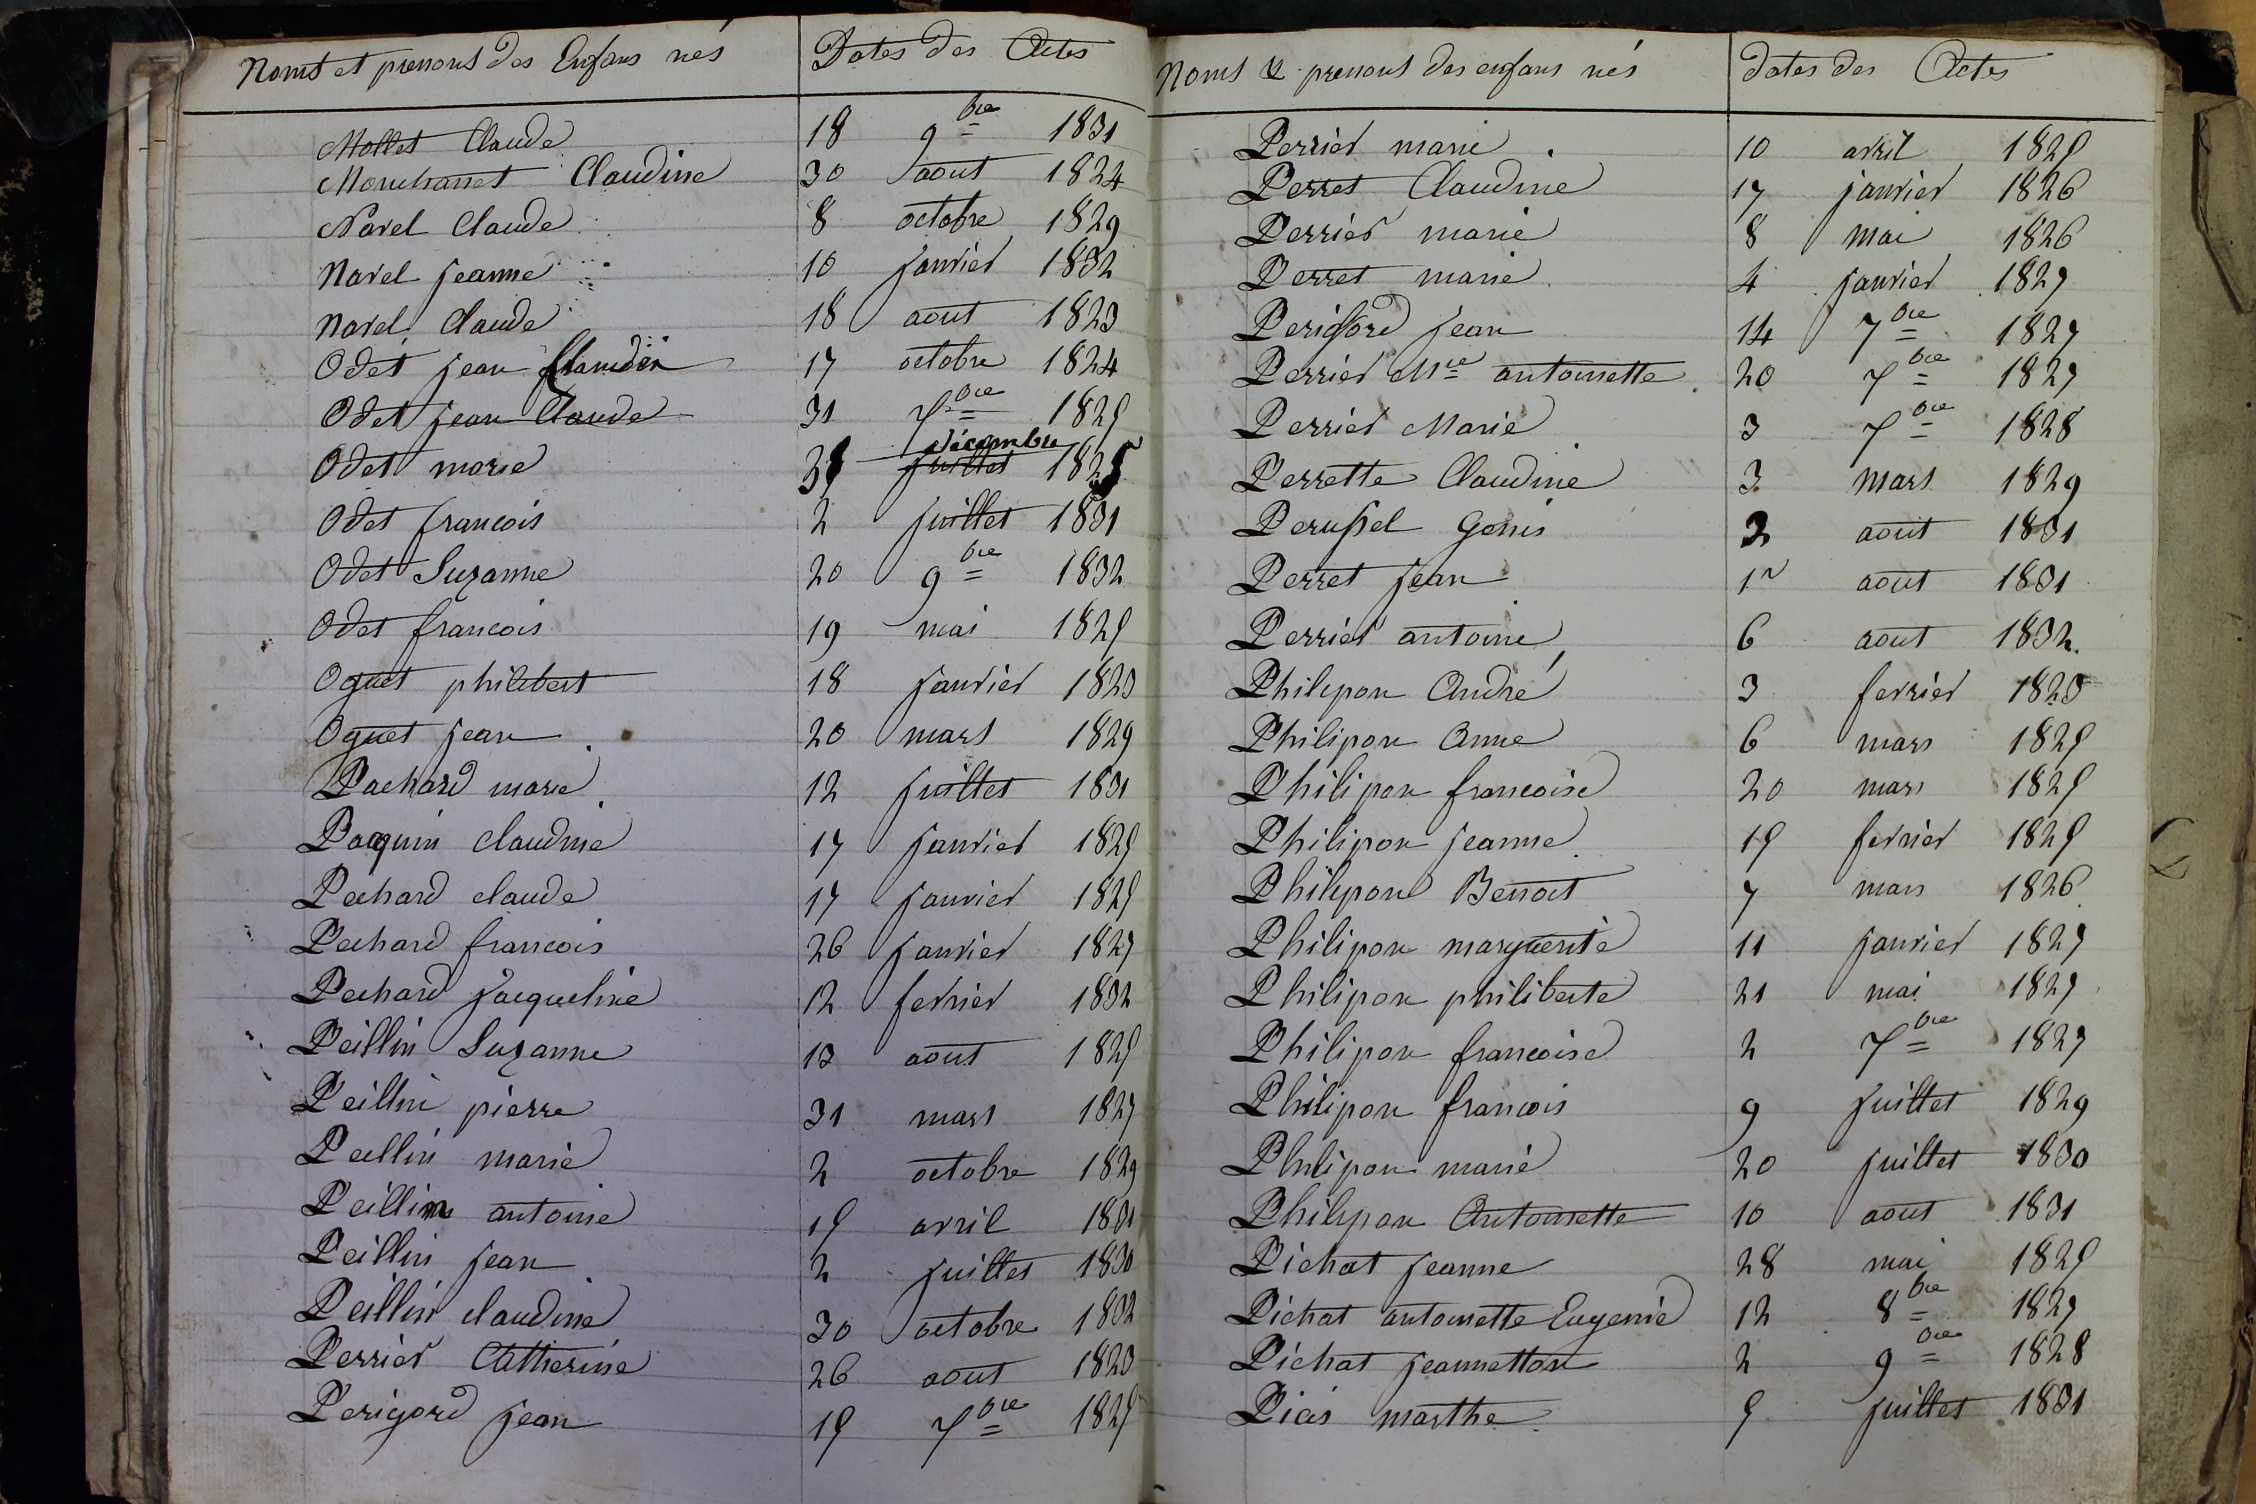 Noms et prenoms des Enfans nés
Dates des Actes
Mollet Claude 18 9bre 1831
Monchanet Claudine 30 aout 1824
Navel Claude 8 octobre 1829
Navel jeanne 10 janvier 1832
Navel Claude 18 aout 1823
Odet jean 17 octobre 1824
Odet jean Claude 31 7bre 1825
Odet marie décembre juillet 1825
Odet francois 2 juillet 1831
Odet Suzanne 20 9bre 1832
Odet francois 19 mai 1825
Oguet philibert 18 janvier 1823
Oguet jean 20 mars 1829
Pachard marie 12 juillet 1831
Paquin claudine 17 janvier 1825
Pechard claude 17 janvier 1825
Pechard francois 26 janvier 1827
Pechard jacqueline 12 fevrier 1832
Peillin Suzanne 13 aout 1825
Peillin pierre 31 mars 1827
Peillin marie 2 octobre 1829
Peillin antoine 15 avril 1831
Peillin jean 2 juillet 1830
Peillin claudine 30 octobre 1832
Perrier Catherine 26 aout 1823
Perigord jean 15 7bre 1825
Noms & prenoms des enfans nés
dates des Actes
Perrier marie 10 avril 1825
Perret Claudine 17 janvier 1826
Perrier marie 8 mai 1826
Perret marie 4 janvier 1827
Perigord jean 14 7bre 1827
Perrier Mie antoinette 20 7bre 1827
Perrier Marie 3 7bre 1828
Perrette Claudine 3 mars 1829
Perussel Genis 2 aout 1831
Perret jean 1r aout 1831
Perrier antoine 6 aout 1832
Philipon André 3 fevrier 1823
Philipon Anne 6 mars 1825
Philipon francoise 20 mars 1825
Philipon jeanne 15 fevrier 1825
Philipon Benoit 7 mars 1826
Philipon marguerite 11 janvier 1827
Philipon philiberte 21 mai 1827
Philipon francoise 2 7bre 1827
Philipon francois 9 juillet 1829
Philipon marie 20 juillet 1830
Philipon Antoinette 10 aout 1831
Pichat jeanne 28 mai 1825
Pichat antoinette Eugenie 12 8bre 1827
Pichat jeannetton 2 9bre 1828
marthe 5 juillet 1831